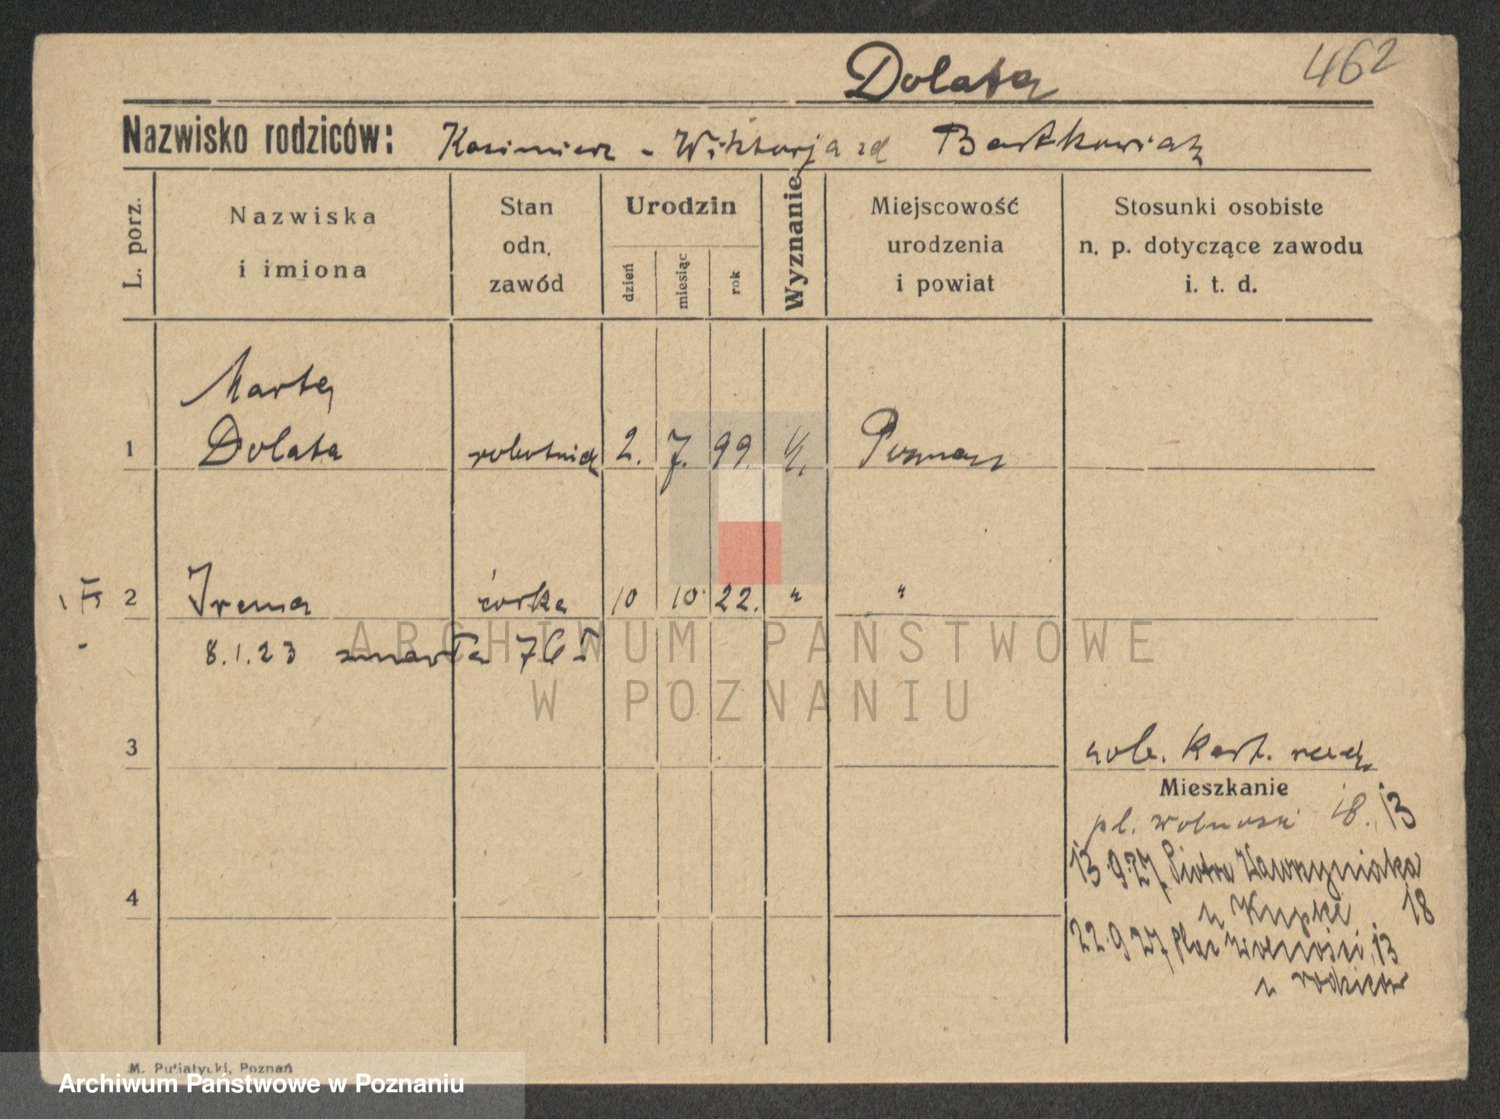 462
Dolata
Nazwisko rodziców: Kazimierz - Wiktorja zd Bartkowiak
L. porz.
Nazwiska
i imiona
Stan
odn.
zawód
Urodzin
dzień
miesiąc
rok
Wyznanie
Miejscowość
urodzenia
i powiat
Stosunki osobiste
n. p. dotyczące zawodu
i. t. d.
Marta
1 Dolata robotnica 2. 7. 99. k. Poznań
2 Irena córka 10 10. 22. " "
8.1.23 zmarła
3
Mieszkanie
pl. Wolności 18. 13
13.9.27 Piotra Wawrzyniaka
u Kupke 18
4
22.9.27 Plac Wolności 13
u rodziców
M. Putiatycki, Poznań
ARCHIWUM PAŃSTWOWE
W POZNANIU
Archiwum Państwowe w Poznaniu